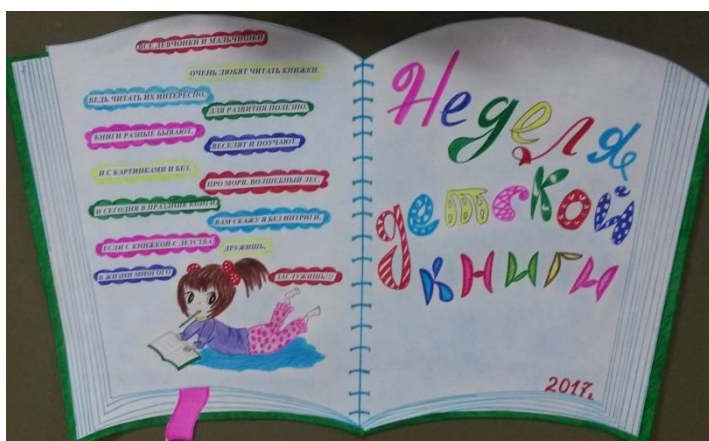 ВСЕ ДЕВЧОНКИ И МАЛЬЧИШКИ
ОЧЕНЬ ЛЮБЯТ ЧИТАТЬ КНИЖКИ.
ВЕДЬ ЧИТАТЬ ИХ ИНТЕРЕСНО,
ДЛЯ РАЗВИТИЯ ПОЛЕЗНО.
КНИГИ РАЗНЫЕ БЫВАЮТ,
ВЕСЕЛЯТ И ПОУЧАЮТ.
И С КАРТИНКАМИ И БЕЗ,
ПРО МОРЯ, ВОЛШЕБНЫЙ ЛЕС.
И СЕГОДНЯ В ПРАЗДНИК КНИГИ,
ВАМ СКАЖУ Я БЕЗ ИНТРИГИ,
ЕСЛИ С КНИЖКОЙ С ДЕТСТВА
ДРУЖИШЬ,
В ЖИЗНИ МНОГОГО
ЗАСЛУЖИШЬ!!!
Неделя
детской
книги
2017.